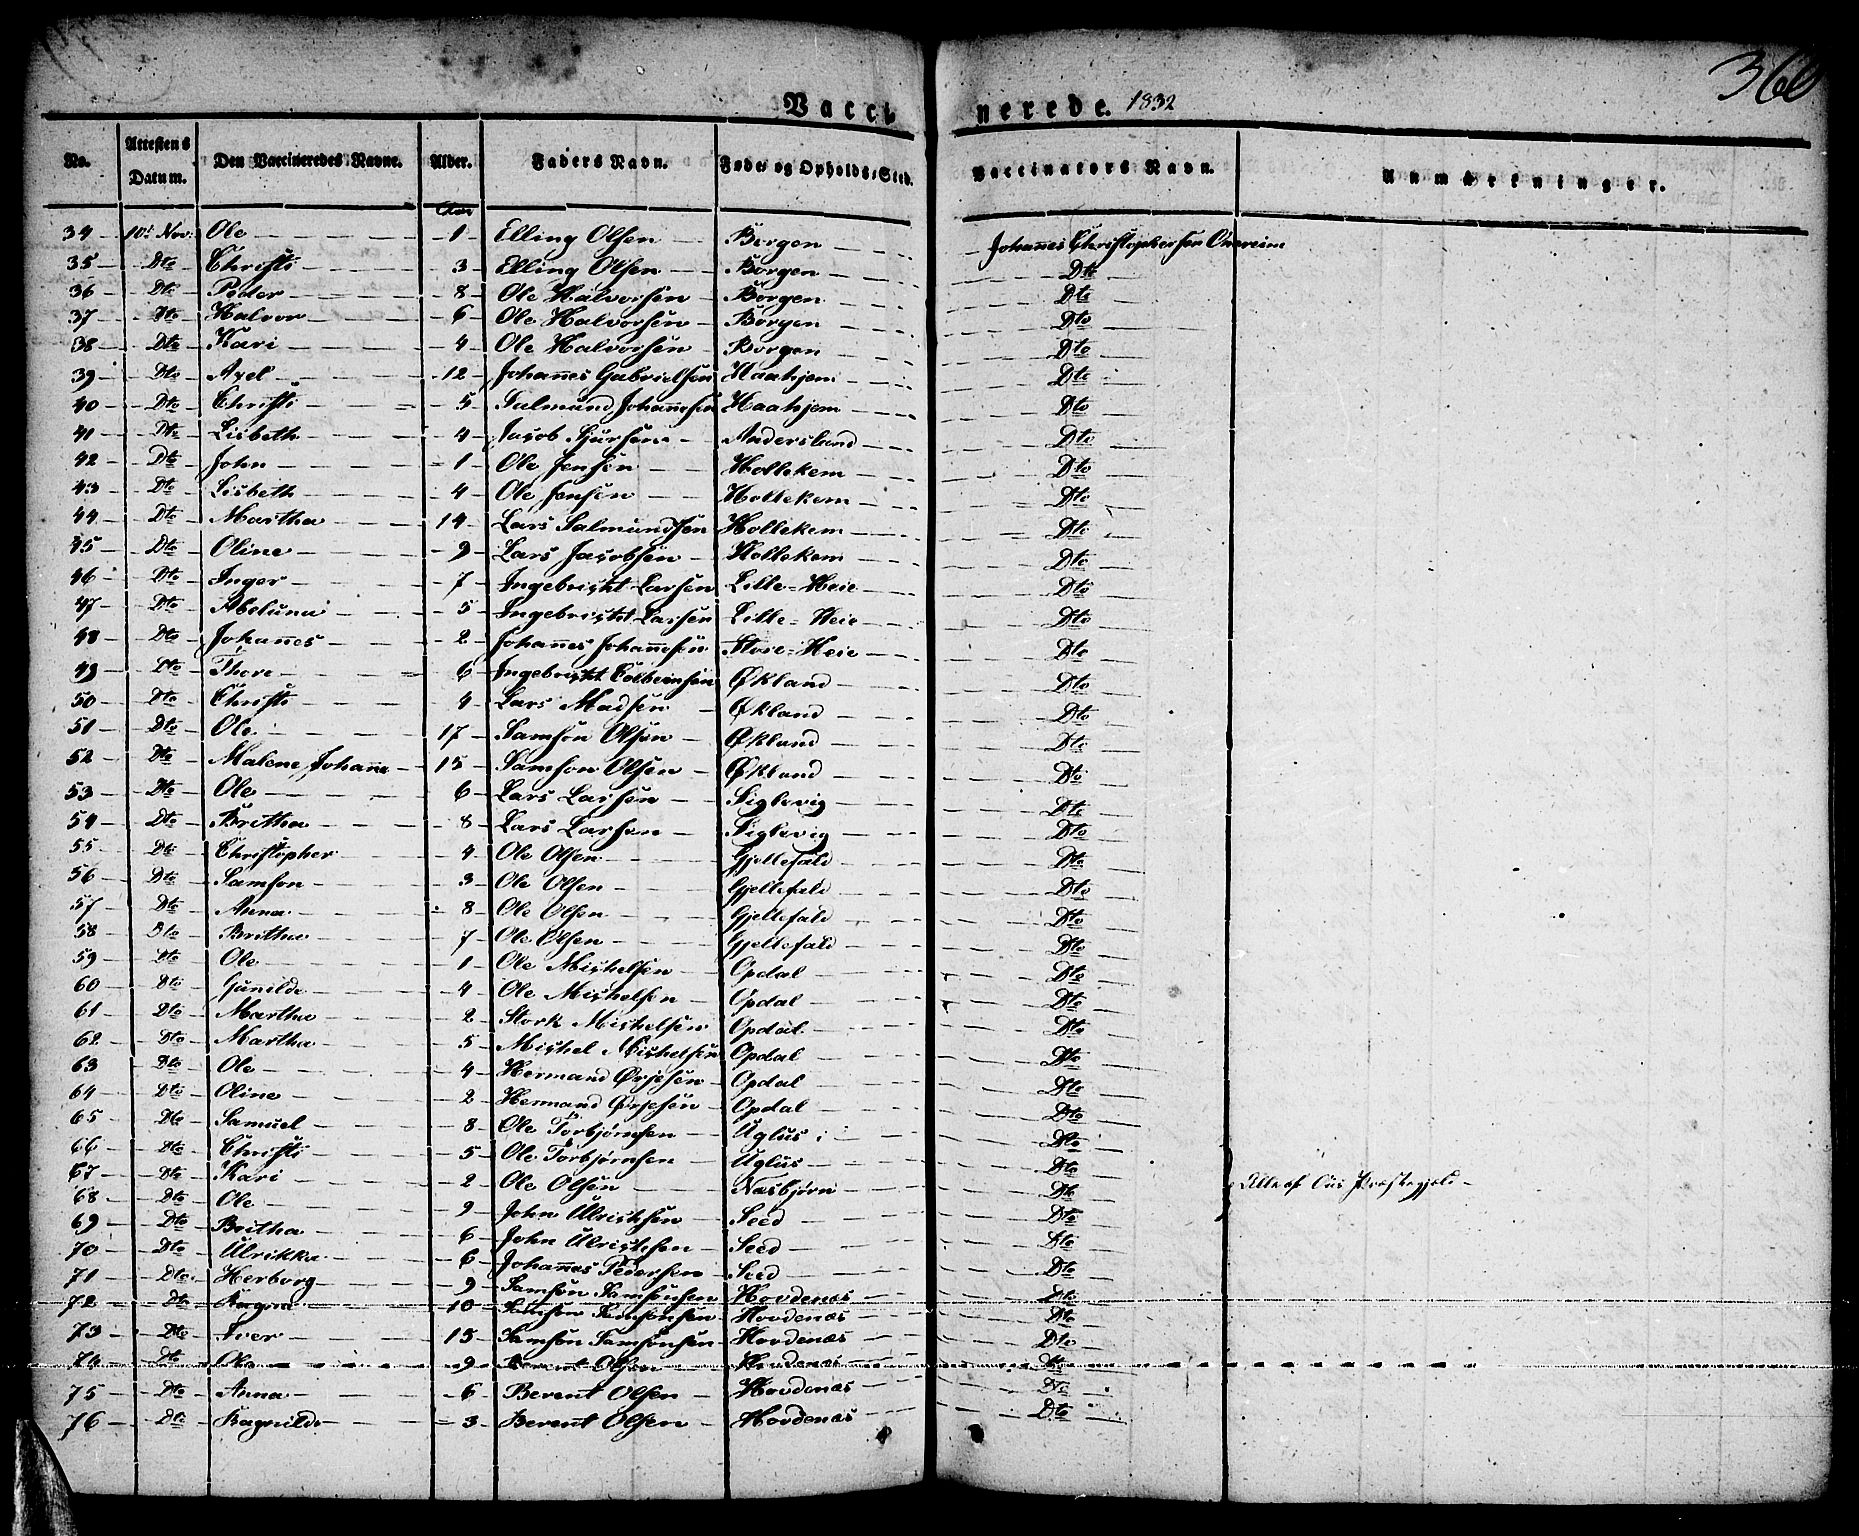 360
Vaccinerede. 1832
No. | Attestens Datum. | Den Vaccineredes Navne. | Alder. | Faders Navn. | Føde- og Opholds-Sted. | Vaccinators Navn. | Anmærkninger.
Aar
34 | 10de Nov. | Ole | 1 | Elling Olsen | Borgen | Johannes Christophersen
35 | Dto | Christi | 3 | Elling Olsen | Borgen | Dto
36 | Dto | Peder | 8 | Ole Halvorsen | Borgen | Dto
37 | Dto | Halvor | 6 | Ole Halvorsen | Borgen | Dto
38 | Dto | Kari | 4 | Ole Halvorsen | Borgen | Dto
39 | Dto | Axel | 12 | Johannes Gabrielsen | Haahjem | Dto
40 | Dto | Christi | 5 | Salmund Johannesen | Haahjem | Dto
41 | Dto | Lisbeth | 4 | Jacob Sjursen | Andersland | Dto
42 | Dto | John | 1 | Ole Jensen | Hollekem | Dto
43 | Dto | Lisbeth | 4 | Ole Jensen | Hollekem | Dto
44 | Dto | Martha | 14 | Lars Salmundsen | Hollekem | Dto
45 | Dto | Oline | 9 | Lars Jacobsen | Hollekem | Dto
46 | Dto | Inger | 7 | Ingebricht Larsen | Lille-Heie | Dto
47 | Dto | Abeluna | 5 | Ingebricht Larsen | Lille-Heie | Dto
48 | Dto | Johannes | 2 | Johannes Johannesen | Store-Heie | Dto
49 | Dto | Thore | 6 | Ingebricht Colbeinsen | Økland | Dto
50 | Dto | Christi | 4 | Lars Madsen | Økland | Dto
51 | Dto | Ole | 17 | Samson Olsen | Økland | Dto
52 | Dto | Malene Johanne | 15 | Samson Olsen | Økland | Dto
53 | Dto | Ole | 6 | Lars Larsen | Siglevig | Dto
54 | Dto | Britha | 8 | Lars Larsen | Siglevig | Dto
55 | Dto | Christopher | 4 | Ole Olsen | Gjellefald | Dto
56 | Dto | Samson | 3 | Ole Olsen | Gjellefald | Dto
57 | Dto | Anna | 8 | Ole Olsen | Gjellefald | Dto
58 | Dto | Britha | 7 | Ole Olsen | Gjellefald | Dto
59 | Dto | Ole | 1 | Ole Michelsen | Opdal | Dto
60 | Dto | Gunilde | 4 | Ole Michelsen | Opdal | Dto
61 | Dto | Martha | 2 | Stork Michelsen | Opdal | Dto
62 | Dto | Martha | 5 | Michel Michelsen | Opdal | Dto
63 | Dto | Ole | 4 | Hermand Ørjesen | Opdal | Dto
64 | Dto | Oline | 2 | Hermand Ørjesen | Opdal | Dto
65 | Dto | Samuel | 8 | Ole Torbjørnsen | Uglus | Dto
66 | Dto | Christi | 5 | Ole Torbjørnsen | Uglus | Dto
67 | Dto | Kari | 2 | Ole Olsen | Næsbjørn | Dto | Alle af Ous Præstegjeld
68 | Dto | Ole | 9 | John Ulrichsen | Seed | Dto
69 | Dto | Britha | 6 | John Ulrichsen | Seed | Dto
70 | Dto | Ulrikka | 6 | Johannes Pedersen | Seed | Dto
71 | Dto | Herborg | 9 | Samson Samsonsen | Hovdenæs | Dto
72 | Dto | Ragna | 10 | Samson Samsonsen | Hovdenæs | Dto
73 | Dto | Iver | 15 | Samson Samsonsen | Hovdenæs | Dto
74 | Dto | Ole | 9 | Berent Olsen | Hovdenæs | Dto
75 | Dto | Anna | 6 | Berent Olsen | Hovdenæs | Dto
76 | Dto | Ragnilde | 3 | Berent Olsen | Hovdenæs | Dto